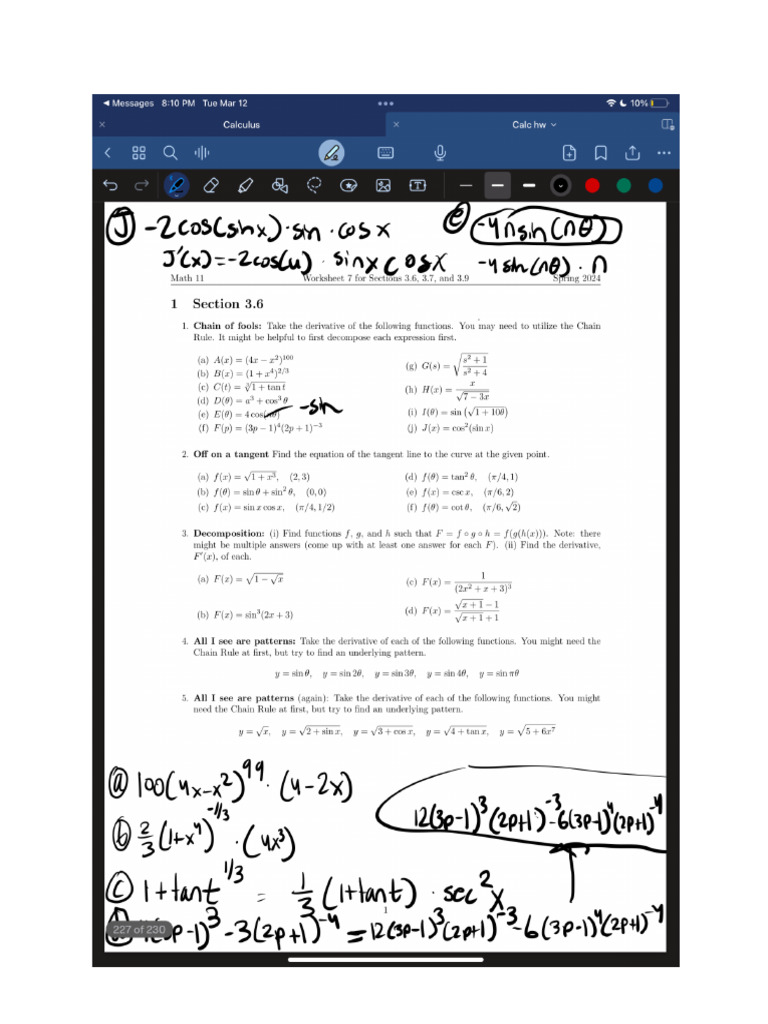 Messages 8:10 PM Tue Mar 12 10%
Calculus Calc hw
J -2cos(sinx)·sin·cosx e -4nsin(nθ)
J'(x)=-2cos(u)·sinxcosx -4sin(nθ)·n
Math 11 Worksheet 7 for Sections 3.6, 3.7, and 3.9 Spring 2024
1 Section 3.6
1. Chain of fools: Take the derivative of the following functions. You may need to utilize the Chain
Rule. It might be helpful to first decompose each expression first.
(a) A(x) = (4x − x²)¹⁰⁰
(b) B(x) = (1 + x⁴)^{2/3}
(c) C(t) = ∛(1 + tan t)
(d) D(θ) = a³ + cos³ θ
(e) E(θ) = 4 cos(nθ) -sin
(f) F(p) = (3p − 1)⁴(2p + 1)⁻³
(g) G(s) = √((s² + 1)/(s² + 4))
(h) H(x) = x/√(7 − 3x)
(i) I(θ) = sin (√(1 + 10θ))
(j) J(x) = cos²(sin x)
2. Off on a tangent Find the equation of the tangent line to the curve at the given point.
(a) f(x) = √(1 + x³), (2, 3)
(b) f(θ) = sin θ + sin² θ, (0, 0)
(c) f(x) = sin x cos x, (π/4, 1/2)
(d) f(θ) = tan² θ, (π/4, 1)
(e) f(x) = csc x, (π/6, 2)
(f) f(θ) = cot θ, (π/6, √2)
3. Decomposition: (i) Find functions f, g, and h such that F = f ∘ g ∘ h = f(g(h(x))). Note: there
might be multiple answers (come up with at least one answer for each F). (ii) Find the derivative,
F′(x), of each.
(a) F(x) = √(1 − √x)
(b) F(x) = sin³(2x + 3)
(c) F(x) = 1/(2x² + x + 3)³
(d) F(x) = (√(x + 1) − 1)/(√(x + 1) + 1)
4. All I see are patterns: Take the derivative of each of the following functions. You might need the
Chain Rule at first, but try to find an underlying pattern.
y = sin θ, y = sin 2θ, y = sin 3θ, y = sin 4θ, y = sin πθ
5. All I see are patterns (again): Take the derivative of each of the following functions. You might
need the Chain Rule at first, but try to find an underlying pattern.
y = √x, y = √(2 + sin x), y = √(3 + cos x), y = √(4 + tan x), y = √(5 + 6x⁷)
a 100(4x-x²)⁹⁹·(4-2x)
12(3p-1)³(2p+1)⁻³-6(3p-1)⁴(2p+1)⁻⁴
b 2/3(1+x⁴)^{-1/3}·(4x³)
c 1+tant^{1/3} = 1/3(1+tant)·sec²x
1
p-1)³-3(2p+1)⁻⁴=12(3p-1)³(2p+1)⁻³-6(3p-1)⁴(2p+1)⁻⁴
227 of 230